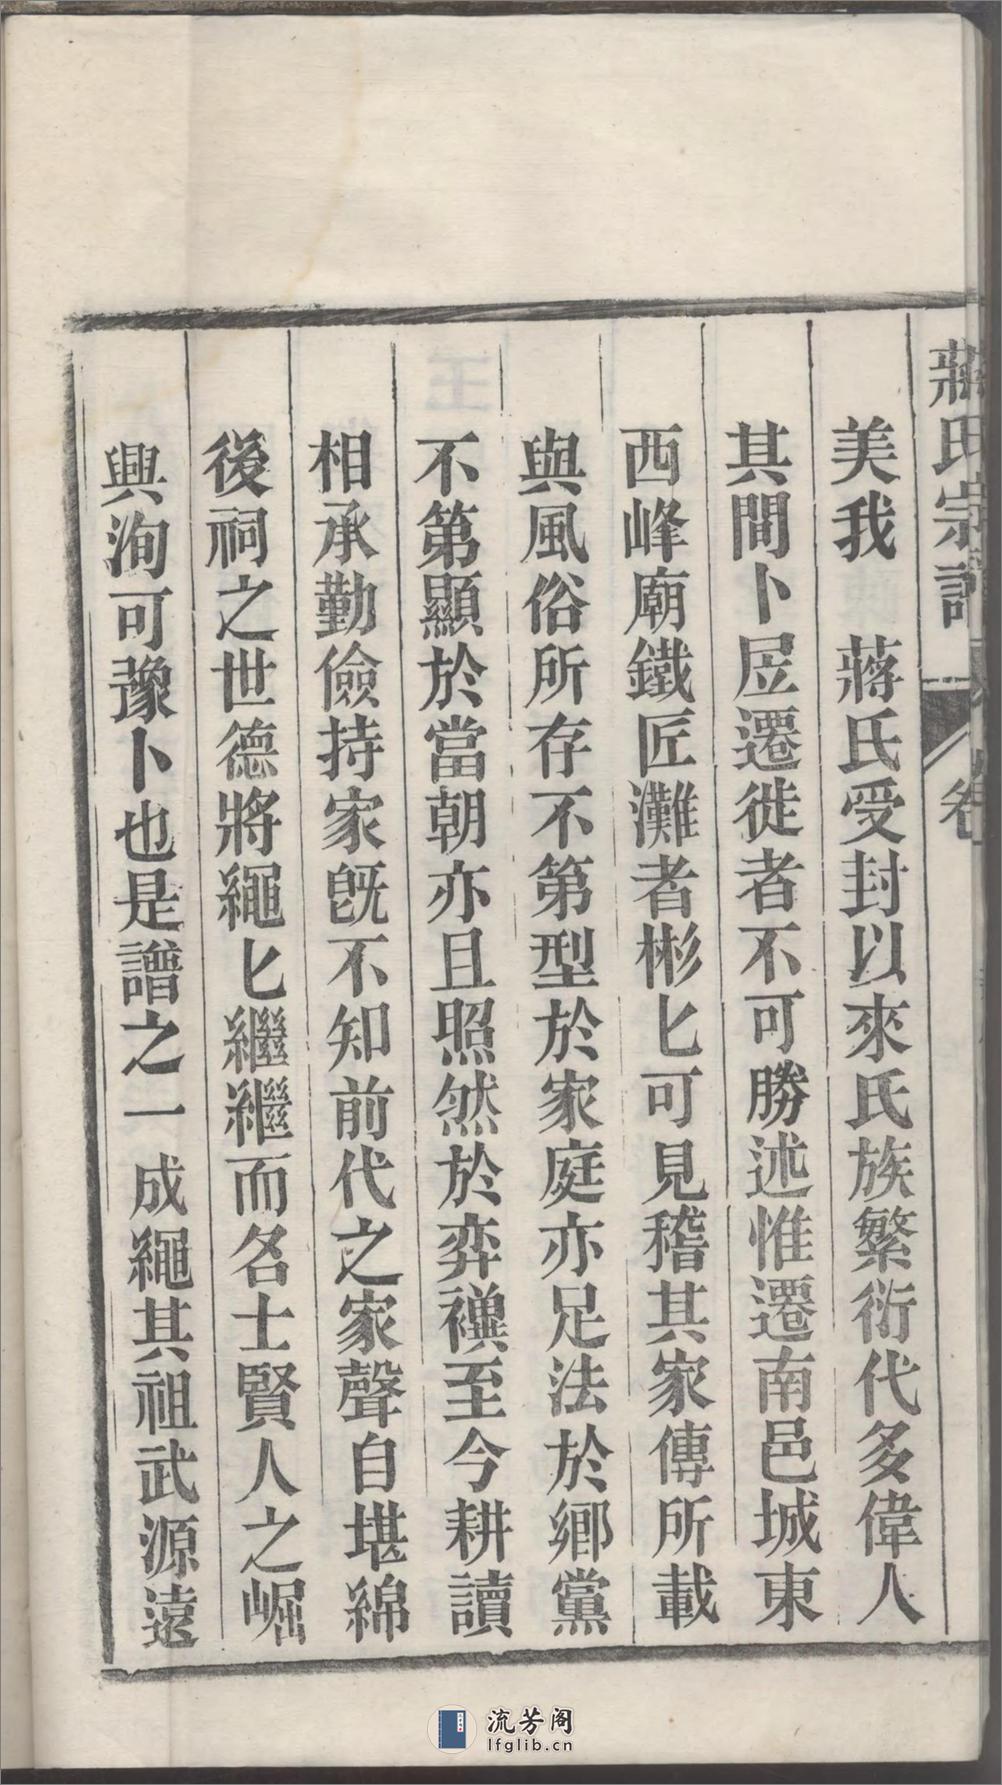 蔣氏宗譜 卷
美我 蔣氏受封以來氏族繁衍代多偉人
其間卜𡱈遷徙者不可勝述惟遷南邑城東
西峰廟鐵匠灘者彬匕可見稽其家傳所載
與風俗所存不第型於家庭亦足法於鄉黨
不第顯於當朝亦且照然於弈襈至今耕讀
相承勤儉持家旣不知前代之家聲自堪綿
後祠之世德將繩匕繼繼而名士賢人之崛
興洵可豫卜也是譜之一成繩其祖武源遠
流芳阁
lfglib.cn